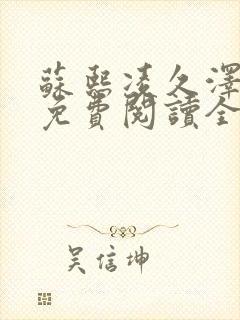 蘇熙凌久澤
免費閱讀全
吳信坤